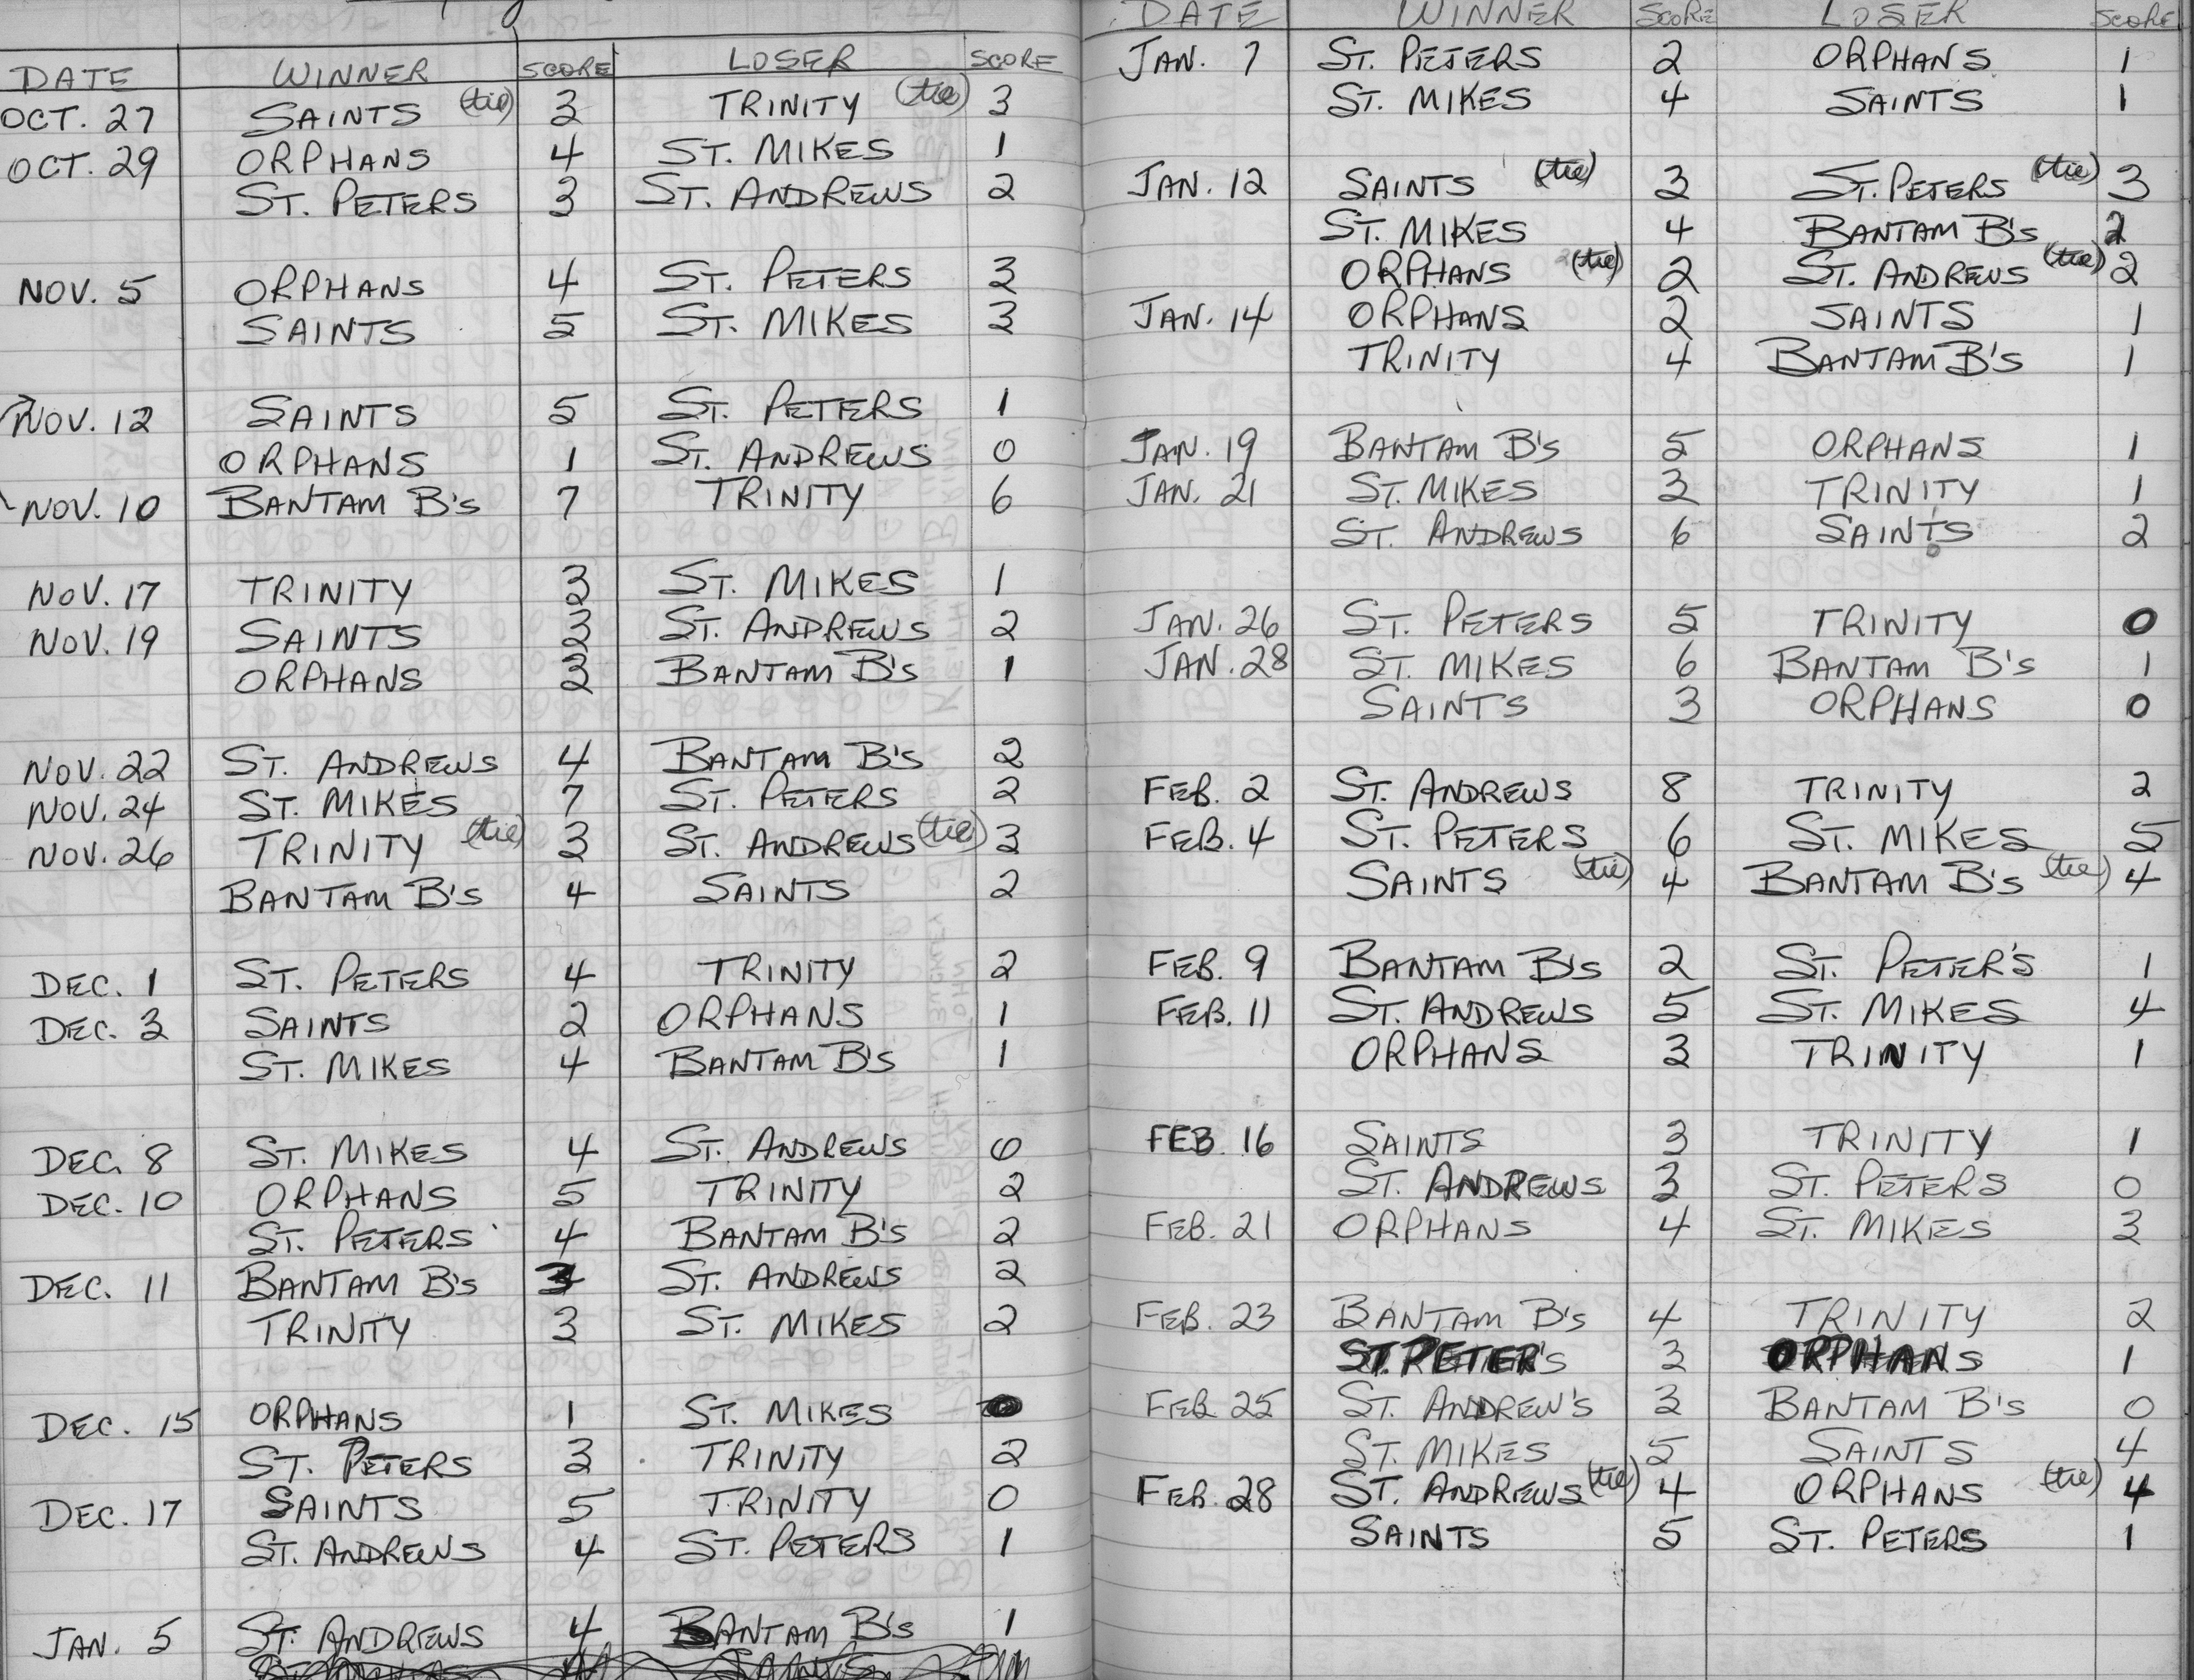 DATE WINNER SCORE LOSER SCORE
OCT. 27 SAINTS (tie) 3 TRINITY (tie) 3
OCT. 29 ORPHANS 4 ST. MIKES 1
ST. PETERS 3 ST. ANDREWS 2
NOV. 5 ORPHANS 4 ST. PETERS 3
SAINTS 5 ST. MIKES 3
NOV. 12 SAINTS 5 ST. PETERS 1
ORPHANS 1 ST. ANDREWS 0
NOV. 10 BANTAM B's 7 TRINITY 6
NOV. 17 TRINITY 3 ST. MIKES 1
NOV. 19 SAINTS 3 ST. ANDREWS 2
ORPHANS 3 BANTAM B's 1
NOV. 22 ST. ANDREWS 4 BANTAM B's 2
NOV. 24 ST. MIKES 7 ST. PETERS 2
NOV. 26 TRINITY (tie) 3 ST. ANDREWS (tie) 3
BANTAM B's 4 SAINTS 2
DEC. 1 ST. PETERS 4 TRINITY 2
DEC. 3 SAINTS 2 ORPHANS 1
ST. MIKES 4 BANTAM B's 1
DEC. 8 ST. MIKES 4 ST. ANDREWS 0
DEC. 10 ORPHANS 5 TRINITY 2
ST. PETERS 4 BANTAM B's 2
DEC. 11 BANTAM B's 3 ST. ANDREWS 2
TRINITY 3 ST. MIKES 2
DEC. 15 ORPHANS 1 ST. MIKES 0
ST. PETERS 3 TRINITY 2
DEC. 17 SAINTS 5 TRINITY 0
ST. ANDREWS 4 ST. PETERS 1
JAN. 5 ST. ANDREWS 4 BANTAM B's 1
DATE WINNER SCORE LOSER SCORE
JAN. 7 ST. PETERS 2 ORPHANS 1
ST. MIKES 4 SAINTS 1
JAN. 12 SAINTS (tie) 3 ST. PETERS (tie) 3
ST. MIKES 4 BANTAM B's 2
ORPHANS (tie) 2 ST. ANDREWS (tie) 2
JAN. 14 ORPHANS 2 SAINTS 1
TRINITY 4 BANTAM B's 1
JAN. 19 BANTAM B's 5 ORPHANS 1
JAN. 21 ST. MIKES 3 TRINITY 1
ST. ANDREWS 6 SAINTS 2
JAN. 26 ST. PETERS 5 TRINITY 0
JAN. 28 ST. MIKES 6 BANTAM B's 1
SAINTS 3 ORPHANS 0
FEB. 2 ST. ANDREWS 8 TRINITY 2
FEB. 4 ST. PETERS 6 ST. MIKES 5
SAINTS (tie) 4 BANTAM B's (tie) 4
FEB. 9 BANTAM B's 2 ST. PETER'S 1
FEB. 11 ST. ANDREWS 5 ST. MIKES 4
ORPHANS 3 TRINITY 1
FEB. 16 SAINTS 3 TRINITY 1
ST. ANDREWS 3 ST. PETERS 0
FEB. 21 ORPHANS 4 ST. MIKES 3
FEB. 23 BANTAM B's 4 TRINITY 2
ST. PETER'S 3 ORPHANS 1
FEB 25 ST. ANDREW'S 3 BANTAM B's 0
ST. MIKES 5 SAINTS 4
FEB. 28 ST. ANDREWS (tie) 4 ORPHANS (tie) 4
SAINTS 5 ST. PETERS 1